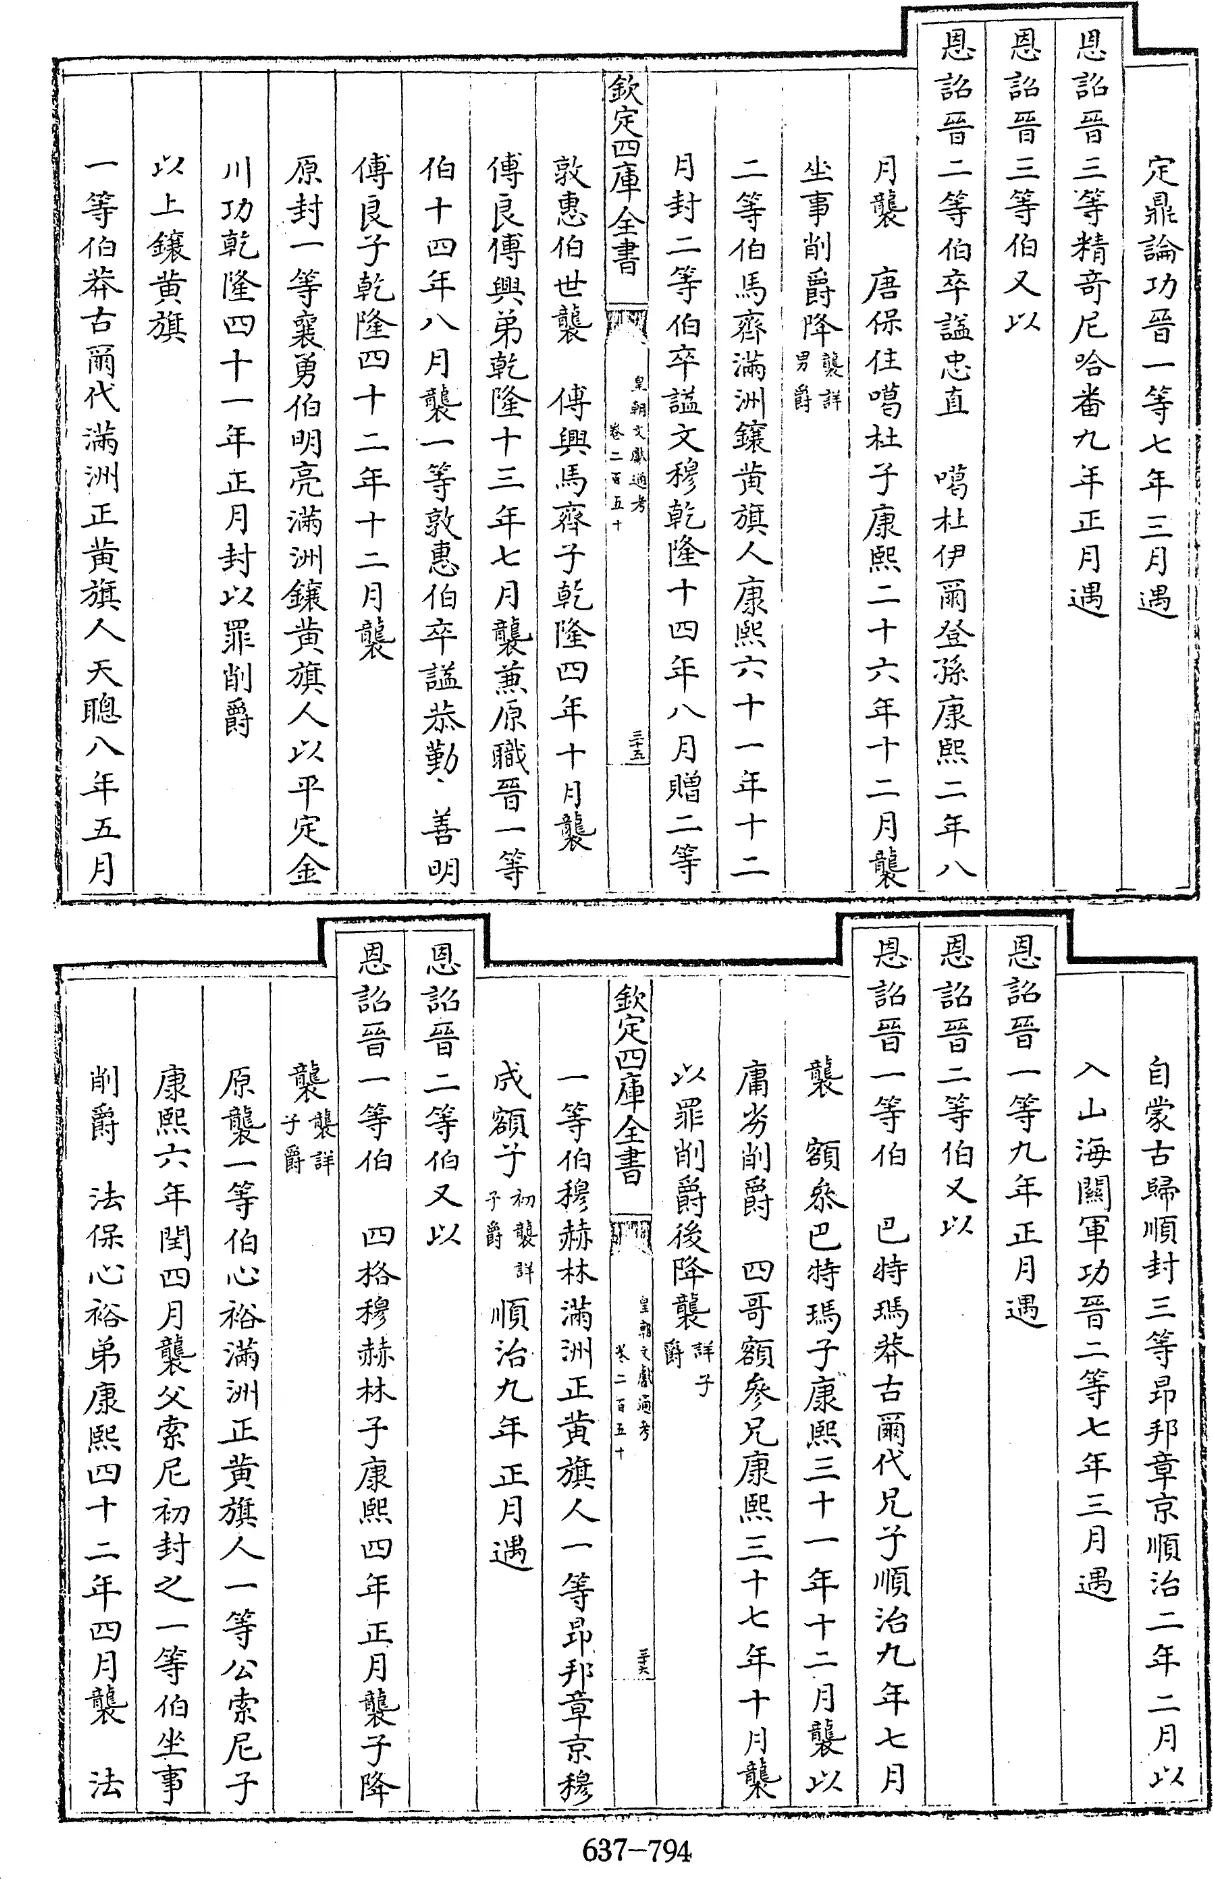 定鼎論功晉一等七年三月遇
恩詔晉三等精奇尼哈番九年正月遇
恩詔晉三等伯又以
恩詔晉二等伯卒諡忠直　噶杜伊爾登孫康熙二年八
月襲　唐保住噶杜子康熙二十六年十二月襲
坐事削爵降襲詳男爵
二等伯馬齊滿洲鑲黃旗人康熙六十一年十二
月封二等伯卒諡文穆乾隆十四年八月贈二等
欽定四庫全書　皇朝文獻通考卷二百五十　三十五
敦惠伯世襲　傅興馬齊子乾隆四年十月襲
傅良傅興弟乾隆十三年七月襲兼原職晉一等
伯十四年八月襲一等敦惠伯卒諡恭勤　善明
傅良子乾隆四十二年十二月襲
原封一等襄勇伯明亮滿洲鑲黃旗人以平定金
川功乾隆四十一年正月封以罪削爵
以上鑲黃旗
一等伯莽古爾代滿洲正黃旗人天聰八年五月
自蒙古歸順封三等昂邦章京順治二年二月以
入山海關軍功晉二等七年三月遇
恩詔晉一等九年正月遇
恩詔晉二等伯又以
恩詔晉一等伯　巴特瑪莽古爾代兄子順治九年七月
襲　額叅巴特瑪子康熙三十一年十二月襲以
庸劣削爵　四哥額參兄康熙三十七年十月襲
以罪削爵後降襲詳子爵
欽定四庫全書　皇朝文獻通考卷二百五十　三十六
一等伯穆赫林滿洲正黃旗人一等昂邦章京穆
成額子初襲詳子爵順治九年正月遇
恩詔晉二等伯又以
恩詔晉一等伯　四格穆赫林子康熙四年正月襲子降
襲襲詳子爵
原襲一等伯心裕滿洲正黃旗人一等公索尼子
康熙六年閏四月襲父索尼初封之一等伯坐事
削爵　法保心裕弟康熙四十二年四月襲　法
637-794